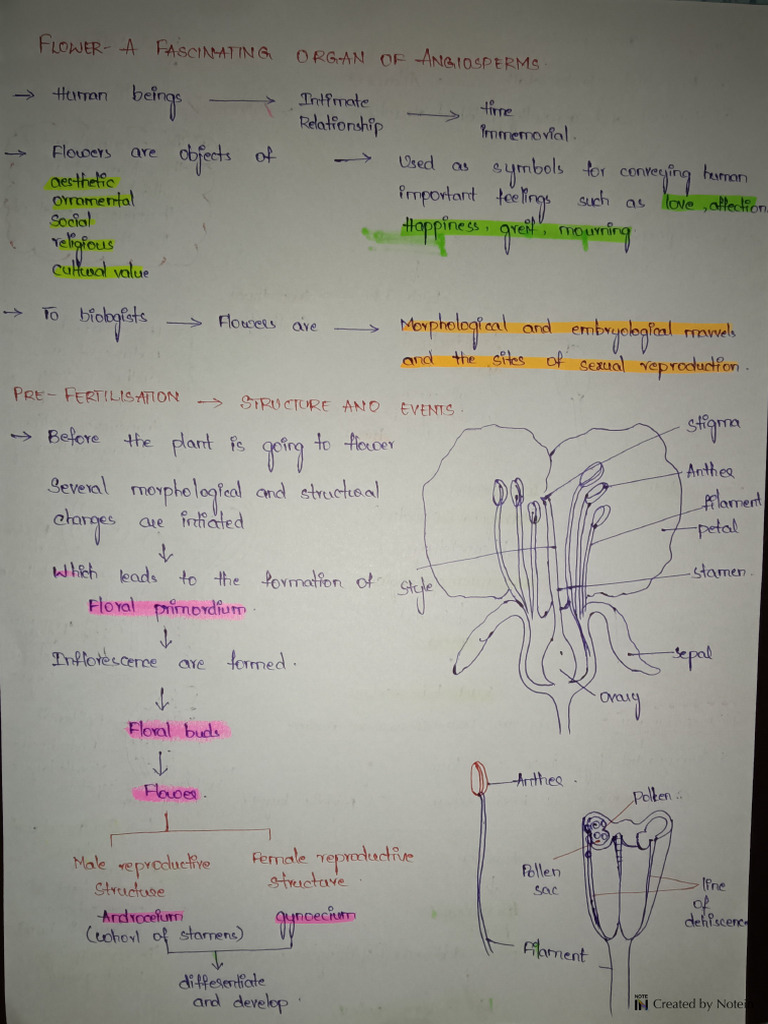 FLOWER- A FASCINATING ORGAN OF ANGIOSPERMS.
→ Human beings → Intimate Relationship → time immemorial.
→ Flowers are objects of
aesthetic
ornamental
social
religious
cultural value
→ Used as symbols for conveying human
important feelings such as love, affection,
Happiness, greif, mourning
→ To biologists → Flowers are → Morphological and embryological marvels
and the sites of sexual reproduction.
PRE-FERTILISATION → STRUCTURE AND EVENTS.
→ Before the plant is going to flower
Several morphological and structural
changes are intiated
↓
Which leads to the formation of
Floral primordium.
↓
Inflorescence are formed.
↓
Floral buds
↓
Flower.
Male reproductive
structure
Androecium
(cohort of stamens)
Female reproductive
structure.
gynoecium
differentiate
and develop.
Stigma
Anther
filament
petal
stamen.
Style
sepal
ovary
Anther.
Filament
Pollen..
Pollen
sac
line
of
dehiscence
NOTE IN Created by Notein